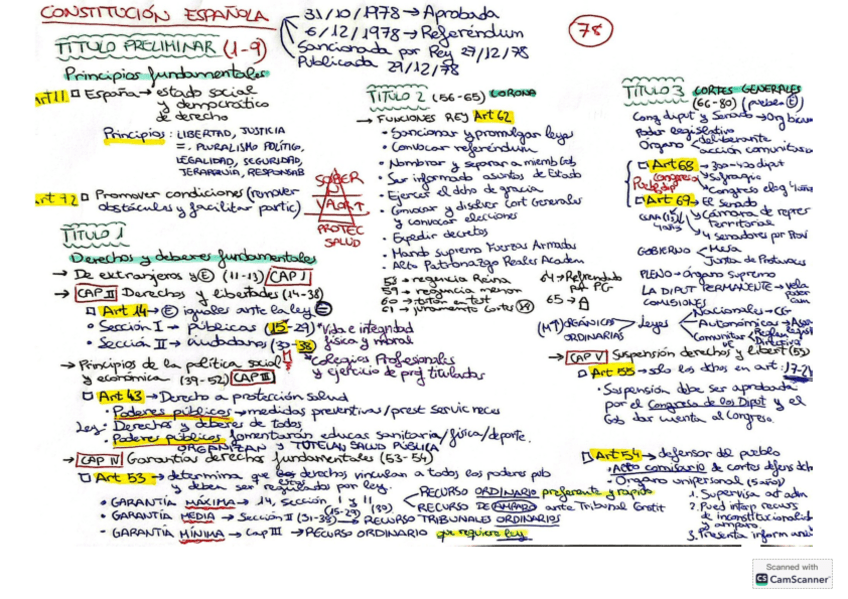 CONSTITUCIÓN ESPAÑOLA
31/10/1978 → Aprobada
6/12/1978 → Referéndum
Sancionada por Rey 27/12/78
Publicada 29/12/78
78
TÍTULO PRELIMINAR (1-9)
Principios fundamentales
Art 1.1 España → estado social
y democrático
de derecho
Principios: LIBERTAD, JUSTICIA
=. PLURALISMO POLÍTICO,
LEGALIDAD, SEGURIDAD,
JERARQUÍA, RESPONSAB
Promover condiciones (remover
obstáculos y facilitar partic)
TÍTULO 1
Derechos y deberes fundamentales
→ De extranjeros y E (11-13) CAP I
→ CAP II Derechos y libertades (14-38)
Art 14 → E iguales ante la ley
• Sección I → públicas (15-29) *Vida e integridad
física y moral
• Sección II → ciudadanos (30-38)
*Colegios Profesionales
y ejercicio de prof tituladas
→ Principios de la política social
y económica (39-52) CAP III
Art 43 → Derecho a protección salud
• Poderes públicos → medidas preventivas/prest servic neces
Ley: Derechos y deberes de todos
• Poderes públicos fomentarán educac sanitaria/física/deporte.
ORGANIZAN y TUTELAN SALUD PÚBLICA
→ CAP IV Garantías derechos fundamentales (53-54)
Art 53 → determina que los derechos vinculan a todos los poderes pub
y deben ser regulados por ley.
• GARANTÍA MÁXIMA → 14, Sección I y II
(15-29) (30)
RECURSO ORDINARIO preferente y rápido
RECURSO DE AMPARO ante Tribunal Constit
• GARANTÍA MEDIA → Sección II (31-38) → RECURSO TRIBUNALES ORDINARIOS
• GARANTÍA MÍNIMA → Cap III → RECURSO ORDINARIO que requiere ley
SABER
VALORT
PROTEC
SALUD
TÍTULO 2 (56-65) CORONA
→ FUNCIONES REY Art 62
• Sancionar y promulgar leyes
• Convocar referéndum
• Nombrar y separar a miemb Gob
• Ser informado asuntos de Estado
• Ejercer el dcho de gracia
• Convocar y disolver Cort Generales
y convocar elecciones
• Expedir decretos
• Mando supremo Fuerzas Armadas
• Alto Patronazgo Reales Academ
58 → regencia Reina
59 → regencia menor
60 → tutor en test
61 → juramento Cortes
64 → Refrendado
PG
65 →
TÍTULO 3 CORTES GENERALES
(66-80)
Cong diput y Senado →
Poder legislativo
Órgano
deliberante
Art 68 → 300-400 diput
Congreso
Sufragio
Congreso eleg 4 años
Art 69 → El Senado
Cámara de repres
territorial
4 senadores por Prov
GOBIERNO
Mesa
Junta de Portavoces
PLENO → órgano supremo
LA DIPUT PERMANENTE →
COMISIONES
ORGÁNICOS
ORDINARIAS
Leyes
Nacionales → CG
Autonómicas →
→ CAP V Suspensión derechos y libert (55)
Art 55 → solo los dchos en art: 17-21
• Suspensión debe ser aprobada
por el Congreso de los Diput y el
Gob dar cuenta al Congreso.
Art 54 → defensor del pueblo
• Alto comisario de cortes defens dch
• Órgano unipersonal (5 años)
1. Supervisa act adm
2. Pued interp recurs
de inconstitucionalid
y amparo.
3. Presenta inform
Scanned with
CS CamScanner